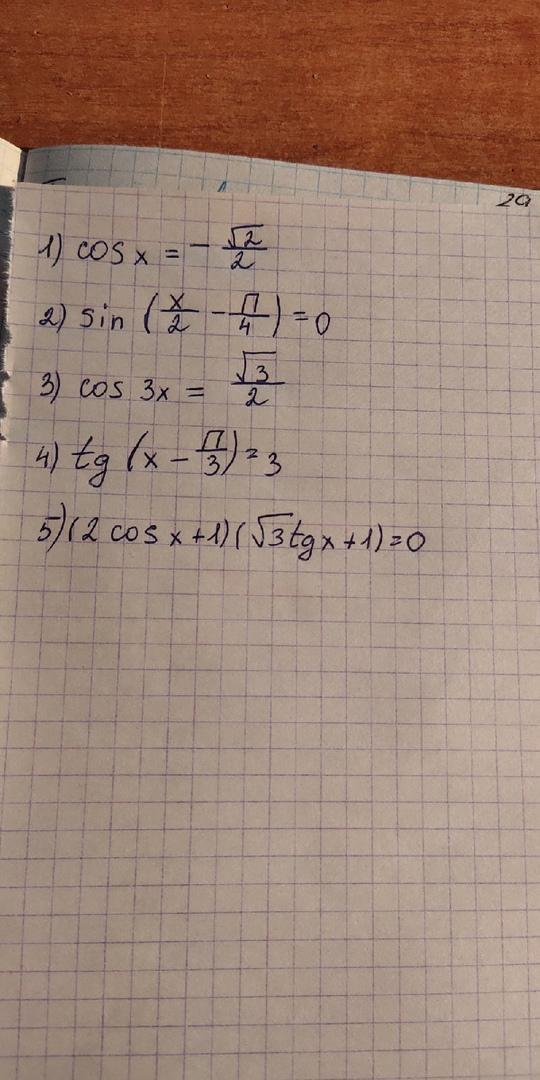 29
1) cos x = - √2/2
2) sin (x/2 - П/4) = 0
3) cos 3x = √3/2
4) tg (x - П/3) = 3
5) (2 cos x + 1) (√3 tg x + 1) = 0